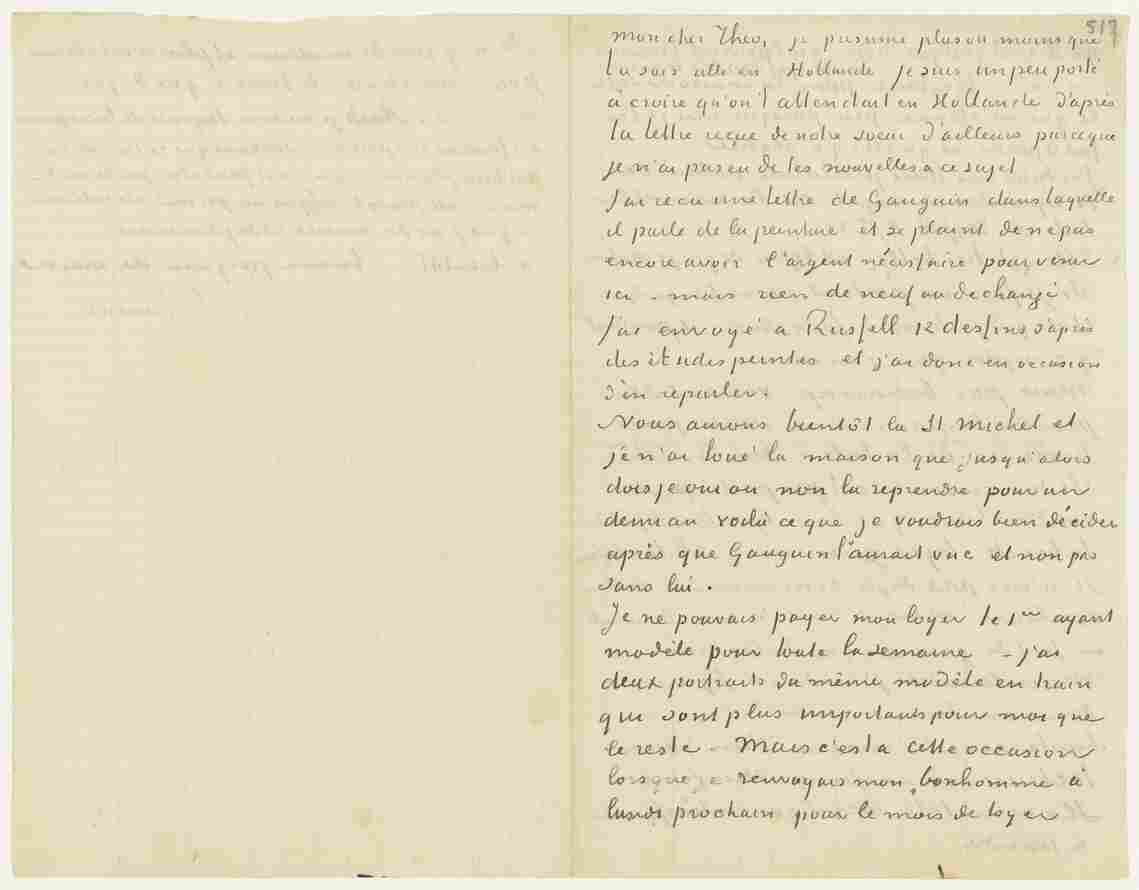 517
mon cher Theo, je presume plus ou moins que
tu sois allé en Hollande je suis un peu porté
à croire qu'on t'attendait en Hollande d'après
la lettre reçue de notre soeur d'ailleurs parceque
je n'ai pas eu de tes nouvelles a ce sujet
J'ai recu une lettre de Gauguin dans laquelle
il parle de la peinture et se plaint de ne pas
encore avoir l'argent nécessaire pour venir
ici – mais rien de neuf ou de changé
J'ai envoyé a Russell 12 dessins d'après
des études peintes et j'ai donc eu occasion
d'en reparler.
Nous aurons bientôt la St Michel et
je n'ai loué la maison que jusqu'alors
dois je oui ou non la reprendre pour un
demi an voilà ce que je voudrais bien décider
après que Gauguin l'aurait vue et non pas
sans lui.
Je ne pouvais payer mon loyer le 1er ayant
modèle pour toute la semaine – j'ai
deux portraits du même modèle en train
qui sont plus importants pour moi que
le reste – Mais c'est a cette occasion
lorsque je renvoyais mon bonhomme à
lundi prochain pour le mois de loyer